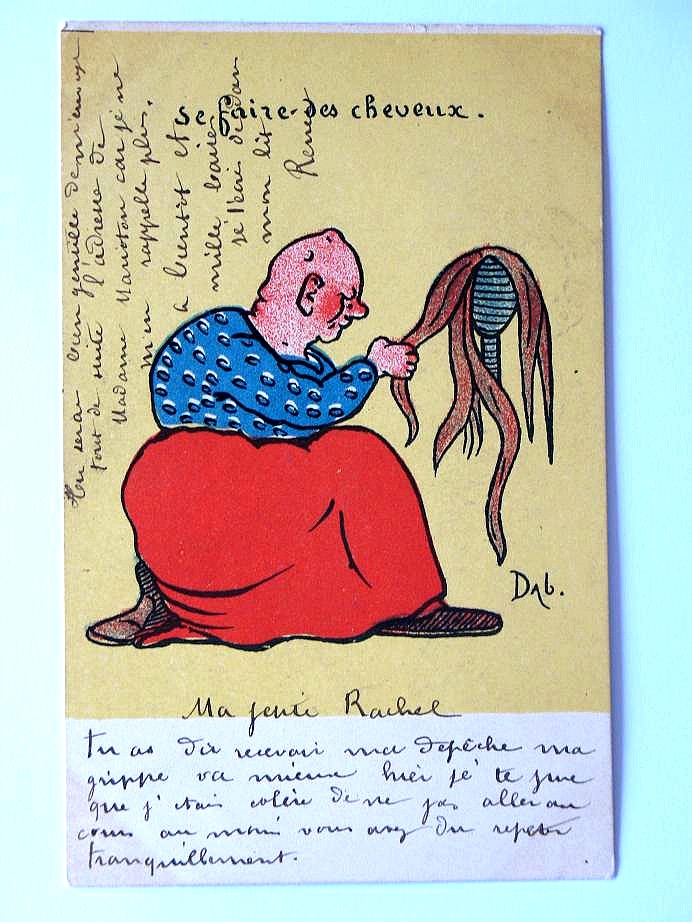 se faire des cheveux.
Dab.
Ma Rachel
tu as dû recevoir ma depêche ma
grippe va mieux hier je te jure
que j'étais colère de ne pas aller au
cours au moins vous avez du
tranquillement.
seras bien gentille de m'envoyer
tout de suite l'adresse de
Madame car je ne
m'en rappelle plus.
a bientôt et
mille
je dedan
mon lit